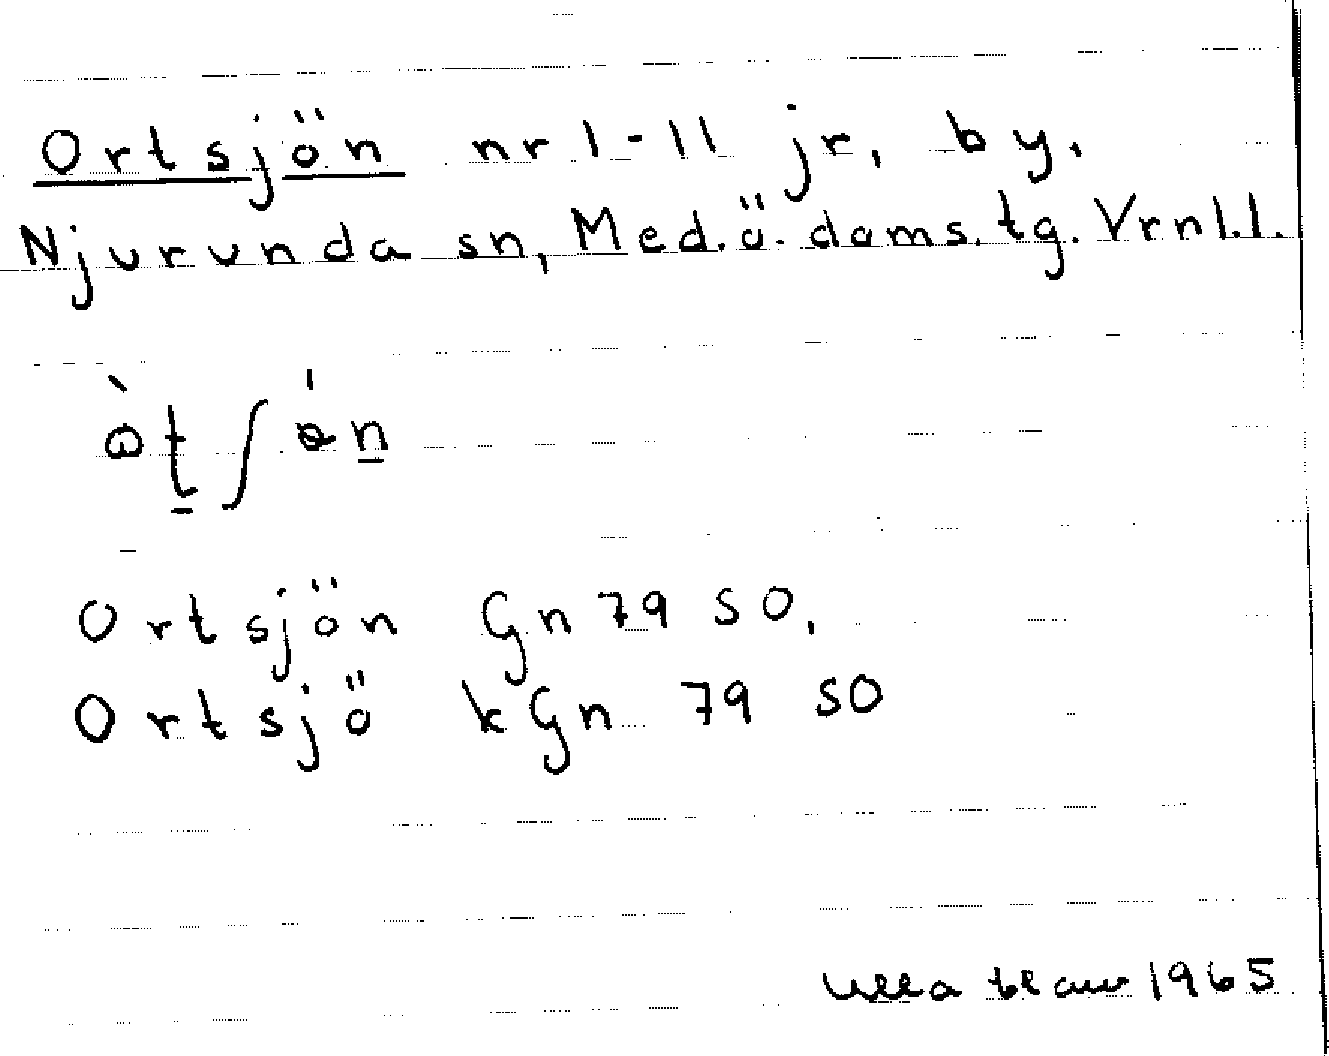 Ortsjön nr 1-11 jr, by,
Njurunda sn, Med. ö. doms. tg. Vrnl.l.
Ortsjön Gn 79 SO,
Ortsjö kGn 79 SO
Ulla 1965